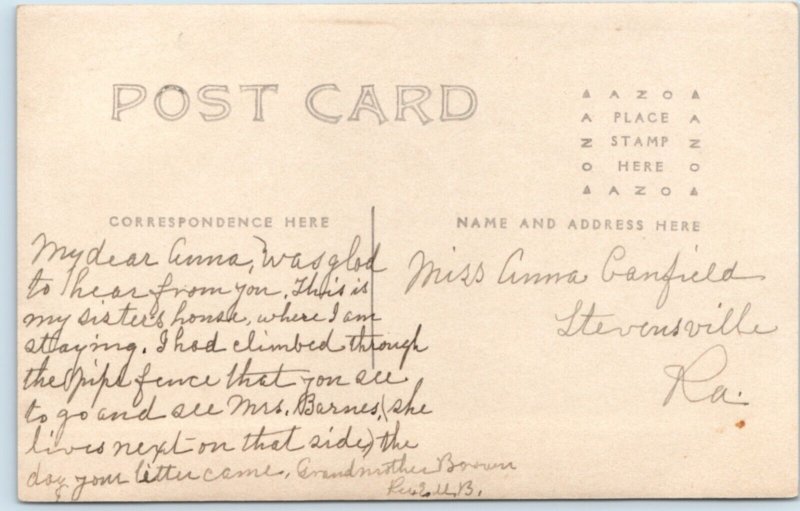 POST CARD
AZO
PLACE
STAMP
HERE
AZO
AZO
AZO
CORRESPONDENCE HERE
NAME AND ADDRESS HERE
My dear Anna, I was glad
to hear from you. This is
my sisters house, where I am
staying. I had climbed through
the pipe fence that you see
to go and see Mrs. Barnes, (she
lives next on that side) the
day your letter came. Grandmother Brown
U.B.
Miss Anna Canfield
Stevensville
Pa.